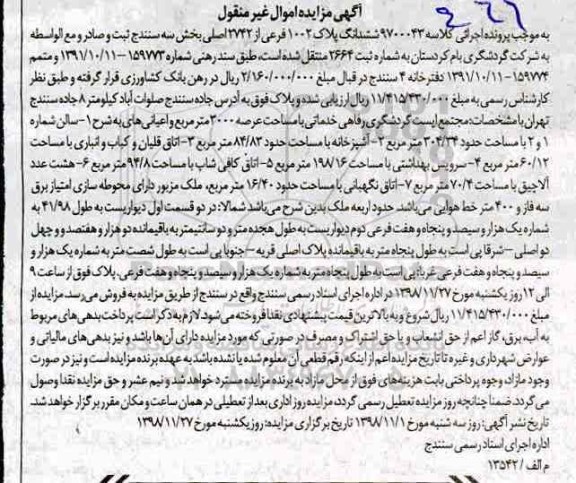 آگهی مزایده اموال غیر منقول
به موجب پرونده اجرائی کلاسه ۹۷۰۰۰۴۳ ششدانگ پلاک ۱۰۰۲ فرعی از ۲۷۴۲ اصلی بخش سه سنندج ثبت و صادر و مع الواسطه
به شرکت گردشگری بام کردستان به شماره ثبت ۲۶۶۴ منتقل شده است، طبق سند رهنی شماره ۱۵۹۷۷۳-۱۳۹۱/۱۰/۱۱ و متمم
۱۵۹۷۷۴-۱۳۹۱/۱۰/۱۱ دفترخانه ۴ سنندج در قبال مبلغ ۲/۱۶۰/۰۰۰/۰۰۰ ریال در رهن بانک کشاورزی قرار گرفته و طبق نظر
کارشناس رسمی به مبلغ ۱۱/۴۱۵/۴۳۰/۰۰۰ ریال ارزیابی شده و پلاک فوق به آدرس جاده سنندج صلوات آباد کیلومتر ۸ جاده سنندج
تهران با مشخصات: مجتمع ایست گردشگری رفاهی خدماتی با مساحت عرصه ۳۰۰۰ متر مربع و اعیانی های به شرح ۱- سالن شماره
۱ و ۲ با مساحت حدود ۳۰۴/۳۴ متر مربع ۲- آشپزخانه با مساحت حدود ۸۴/۸۳ متر مربع ۳- اتاق قلیان و کباب و انباری با مساحت
۶۰/۱۲ متر مربع ۴- سرویس بهداشتی با مساحت ۱۹۸/۱۶ متر مربع ۵- اتاق کافی شاپ با مساحت ۹۴/۸ متر مربع ۶- هشت عدد
آلاچیق با مساحت ۷۰/۴ متر مربع ۷- اتاق نگهبانی با مساحت حدود ۱۶/۴۰ متر مربع، ملک مزبور دارای محوطه سازی امتیاز برق
سه فاز و ۴۰۰ متر خط هوایی می‌باشد. حدود اربعه ملک بدین شرح می‌باشد شمالا: در دو قسمت اول دیواریست به طول ۴۱/۹۸ به
شماره یک هزار و سیصد و پنجاه و هفت فرعی دوم دیواریست به طول هجده متر و دو سانتیمتر به باقیمانده دو هزار و هفتصد و چهل
دو اصلی – شرقا پی است به طول پنجاه متر به باقیمانده پلاک اصلی قریه – جنوبا پی است به طول شصت متر به شماره یک هزار و
سیصد و پنجاه و هفت فرعی غربا: پی است به طول پنجاه متر به شماره یک هزار و سیصد و پنجاه و هفت فرعی. پلاک فوق از ساعت ۹
الی ۱۲ روز یکشنبه مورخ ۱۳۹۸/۱۱/۲۷ در اداره اجرای اسناد رسمی سنندج واقع در سنندج از طریق مزایده به فروش می‌رسد. مزایده از
مبلغ ۱۱/۴۱۵/۴۳۰/۰۰۰ ریال شروع و به بالاترین قیمت پیشنهادی نقدا فروخته می‌شود. لازم به ذکر است پرداخت بدهی های مربوط
به آب، برق، گاز اعم از حق انشعاب و یا حق اشتراک و مصرف در صورتی که مورد مزایده دارای آن‌ها باشد و نیز بدهی های مالیاتی و
عوارض شهرداری و غیره تا تاریخ مزایده اعم از اینکه رقم قطعی آن معلوم شده یا نشده باشد به عهده برنده مزایده است و نیز در صورت
وجود مازاد، وجوه پرداختی بابت هزینه‌های فوق از محل مازاد به برنده مزایده مسترد خواهد شد و نیم عشر و حق مزایده نقدا وصول
می گردد. ضمنا چنانچه روز مزایده تعطیل رسمی گردد، مزایده روز اداری بعد از تعطیلی در همان ساعت و مکان مقرر برگزار خواهد شد.
تاریخ نشر آگهی: روز سه شنبه مورخ ۱۳۹۸/۱۱/۱ تاریخ برگزاری مزایده: روز یکشنبه مورخ ۱۳۹۸/۱۱/۲۷
اداره اجرای اسناد رسمی سنندج
م الف / ۱۳۵۴۲